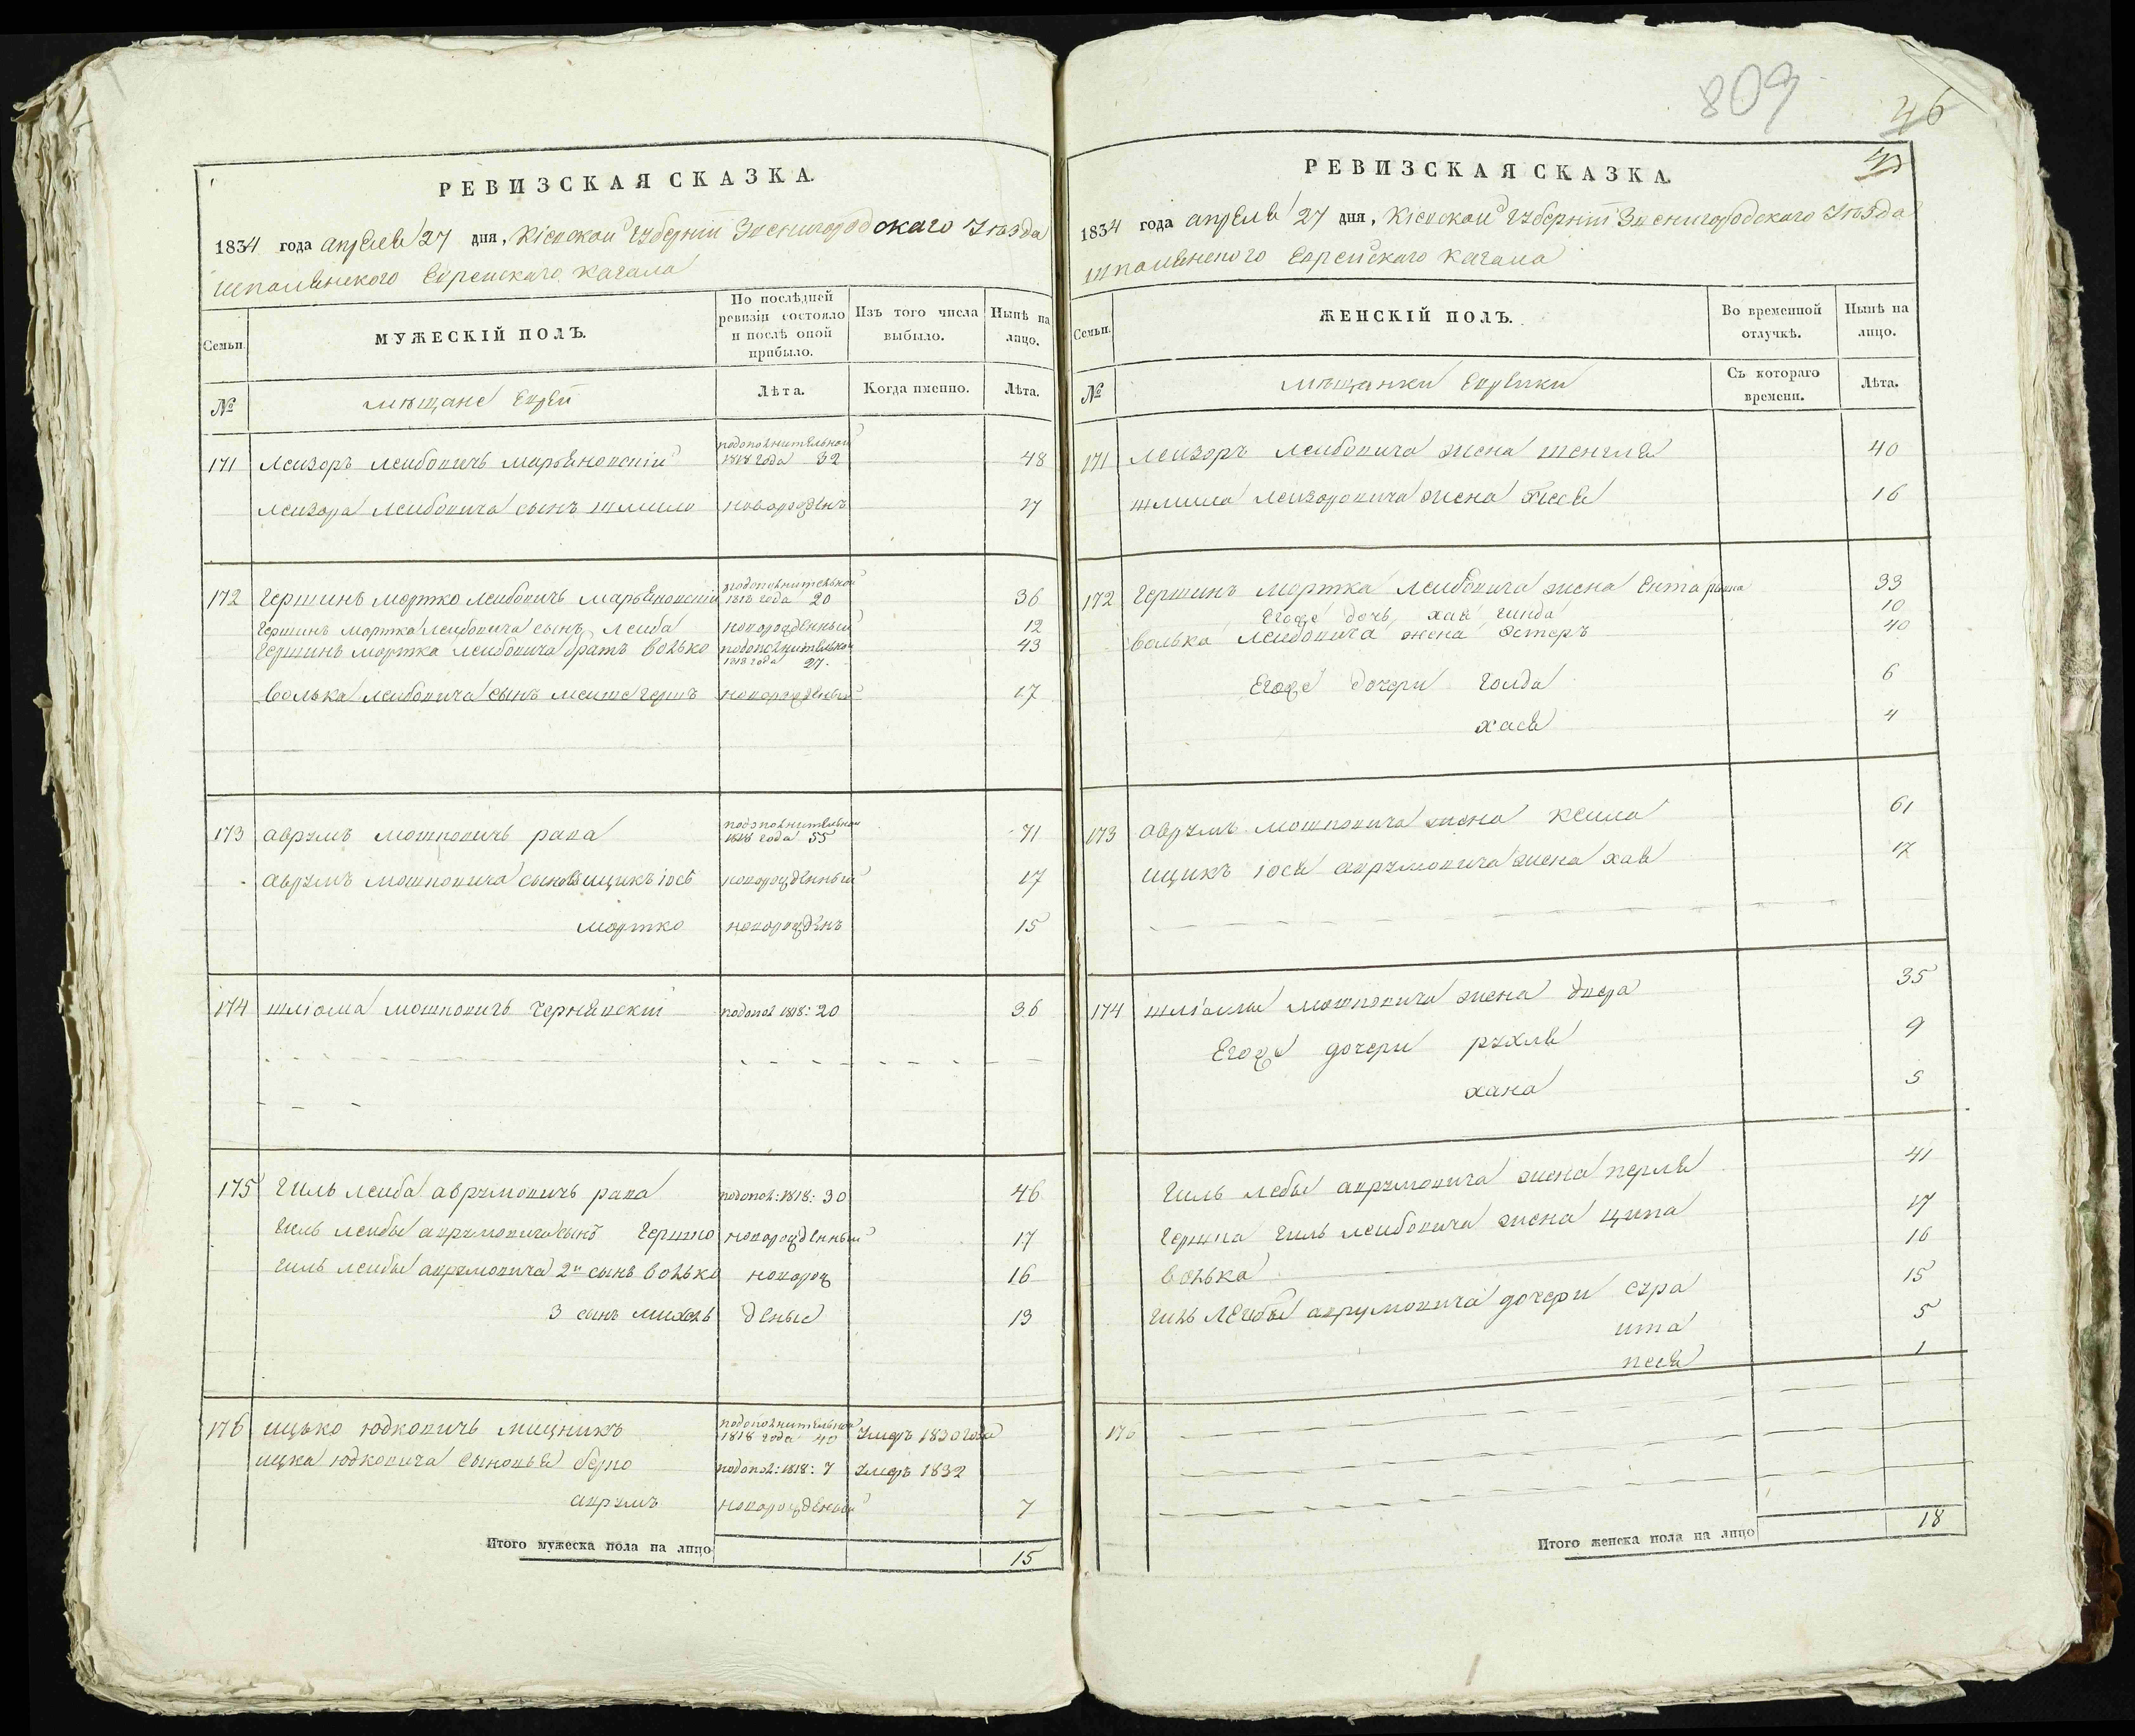 809
46
РЕВИЗСКАЯ СКАЗКА.
1834 года апреля 27 дня, Кіевской Губерніи Звенигородскаго Уезда
шполянского Еврейскаго Кагала
Семьи.
МУЖЕСКІЙ ПОЛЪ.
По послѣдней ревизіи состояло и послѣ оной прибыло.
Изъ того числа выбыло.
Нынѣ на лицо.
№
мѣщане Евреи
Лѣта.
Когда именно.
Лѣта.
171 Леизоръ Леибовичъ Марьяновскій подополнительной 1818 года 32 48
Леизора Леибовича сынъ шлиомо новорожденъ 17
172 Гершинъ Мортко Леибовичъ Марьяновскій подополнительной 1818 года 20 36
Гершинъ Мортка Леибовича сынъ Леиба новорожденный 12
Гершинъ Мортка Леибовича братъ Волько подополнительной 1818 года 27. 43
Волька Леибовича сынъ Гершъ новорожденный 17
173 аврумъ мошковичъ рапа подополнительной 1818 года 55 71
аврумъ мошковича сыновя ицикъ іось новорожденный 17
мортко новорожденъ 15
174 шліома мошковичъ Чернявскій подопол 1818: 20 36
175 Гиль леиба аврумовичъ рапа подопол: 1818: 30 46
Гиль леибы аврумовича сынъ Гершко новорожденный 17
Гиль леибы аврумовича 2й сынъ волько новорож 16
3 сынъ михель деные 13
176 ицько юдковичъ подополнительной 1818 года 40 Умеръ 1830 года
ицка юдковича сыновья берко подопол: 1818: 7 Умеръ 1832
аврумъ новорожденный 7
Итого мужеска пола на лицо 15
РЕВИЗСКАЯ СКАЗКА.
1834 года апреля 27 дня, Кіевской Губерніи Звенигородскаго Уезда
шполянского Еврейскаго Кагала
Семьи.
ЖЕНСКІЙ ПОЛЪ.
Во временной отлучкѣ.
Нынѣ на лицо.
№
мѣщанки Еврейки
Съ котораго времени.
Лѣта.
171 Леизоръ Леибовича жена шейндля 40
шлиома Леизоровича жена 16
172 Гершинъ Мортка Леибовича жена Ента 33
Егоже дочь хая гинда 10
Волька Леибовича жена Эстеръ 40
Егоже дочери Голда 6
хася 4
173 аврумъ мошковича жена Кейла 61
ицикъ іося аврумовича жена хая 17
174 шліомы мошковича жена двера 35
Егоже дочери рухля 9
хана 5
Гиль лебы аврумовича жена перля 41
Гершка Гиль леибовича жена ципа 17
Волька 16
Гиль леибы аврумовича дочери сура 15
ита 5
песя 1
176
Итого женска пола на лицо 18